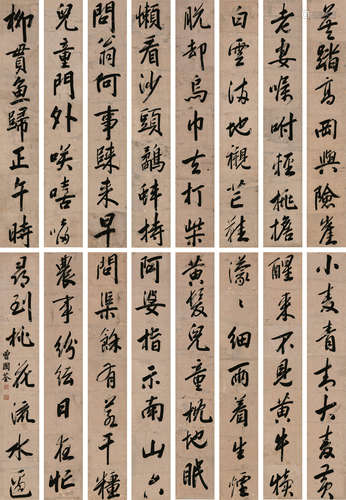 莫踏高岡與險崖
老妻嘱咐輕挑擔
白雲滿地襯芒鞋
脫却烏巾去打柴
懶看沙頭鷸蚌持
問翁何事歸來早
兒童門外咲嘻嘻
柳貫魚歸正午時
小麥青青大麥黃
醒來不見黃牛犢
濛濛細雨着生煙
黃髮兒童枕地眠
阿婆指示南山
問渠餘有若干糧
農事紛紜日夜忙
尋到桃花流水邊
曾國荃